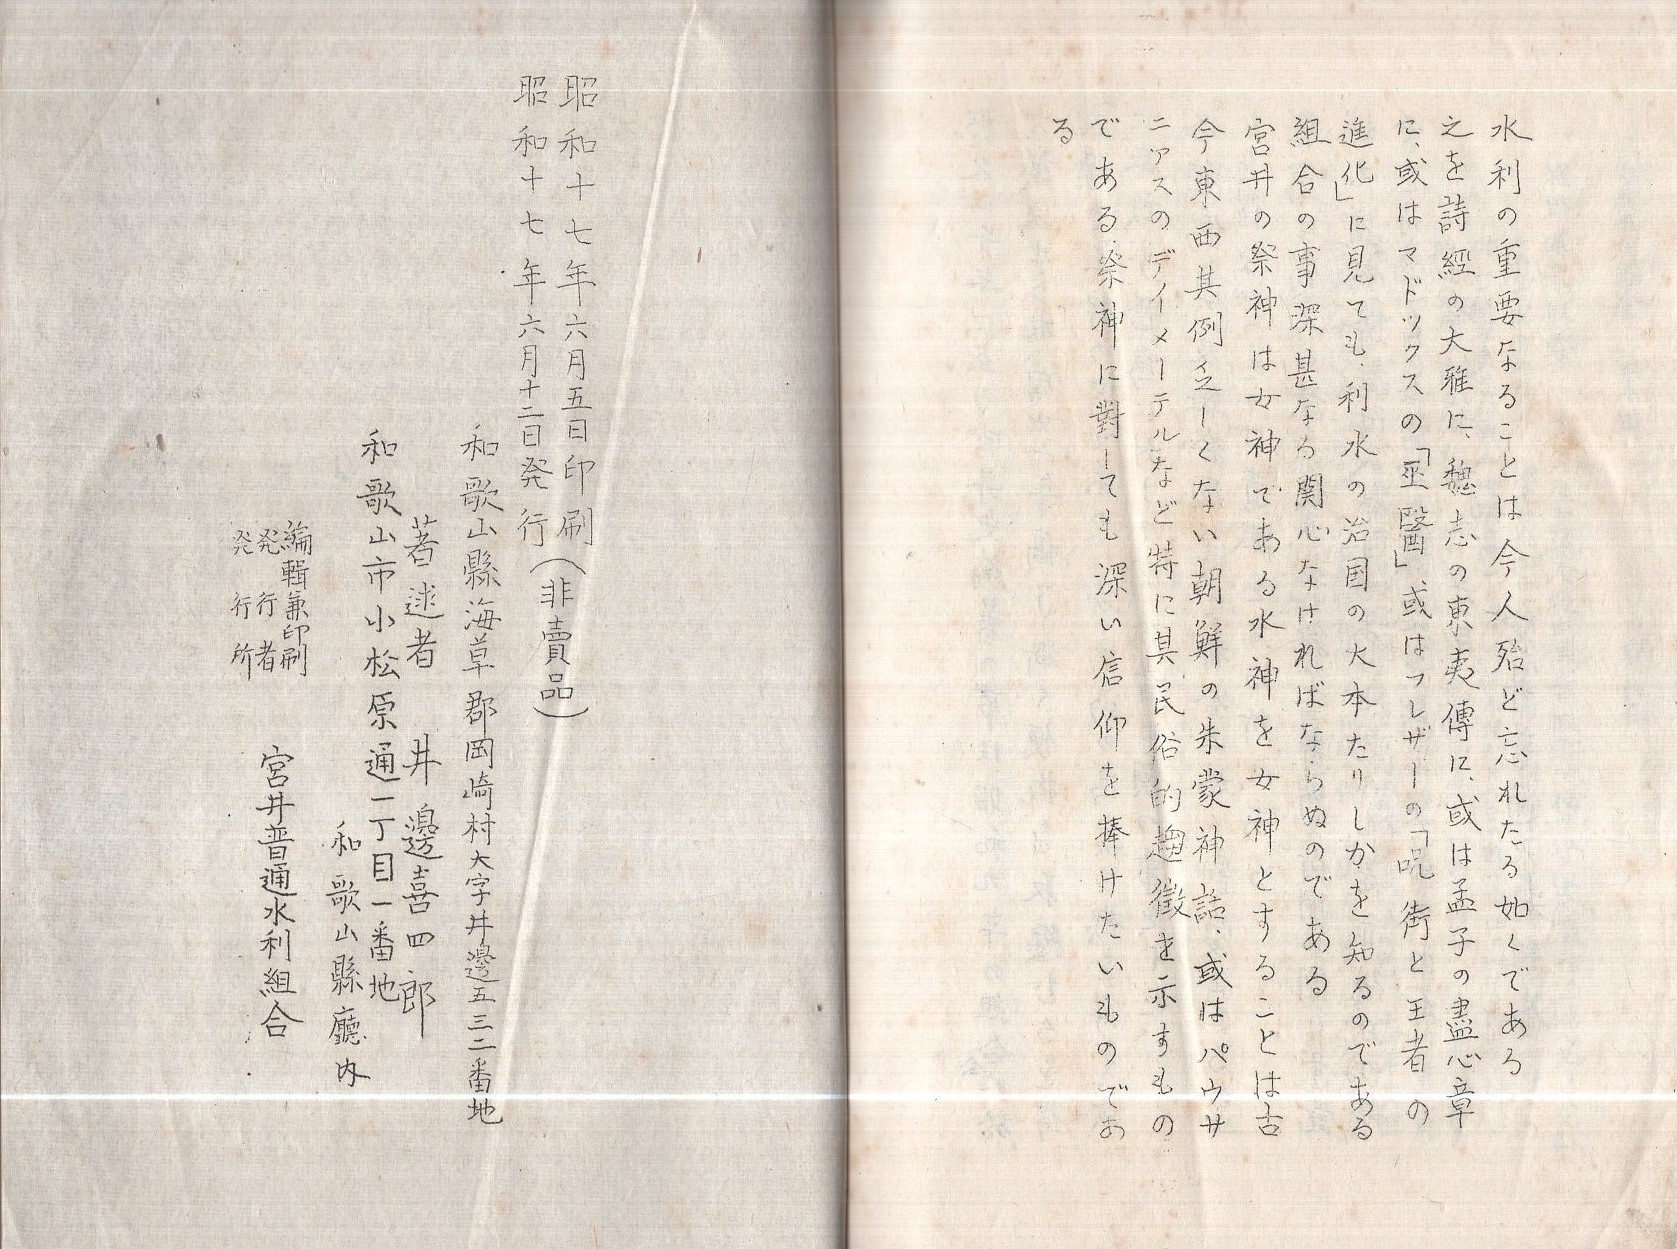 水利の重要なることは今人殆ど忘れたる如くである
之を詩經の大雅に、魏志の東夷傳に、或は孟子の盡心章
に、或はマドックスの「巫醫」或はフレザーの「呪術と王者の
進化」に見ても、利水の治国の大本たりしかを知るのである
組合の事深甚なる関心なければならぬのである
宮井の祭神は女神である水神を女神とすることは古
今東西其例乏しくない朝鮮の朱蒙神話、或はパウサ
ニアスのデイメーテルなど特に其民俗的趣徴を示すもの
である祭神に對しても深い信仰を捧けたいものであ
る
昭和十七年六月五日印刷
昭和十七年六月十二日発行
(非賣品)
和歌山縣海草郡岡崎村大字井邊五三二番地
著述者 井邊喜四郎
和歌山市小松原通一丁目一番地
和歌山縣廳内
編輯兼印刷
発行者
発行所
宮井普通水利組合